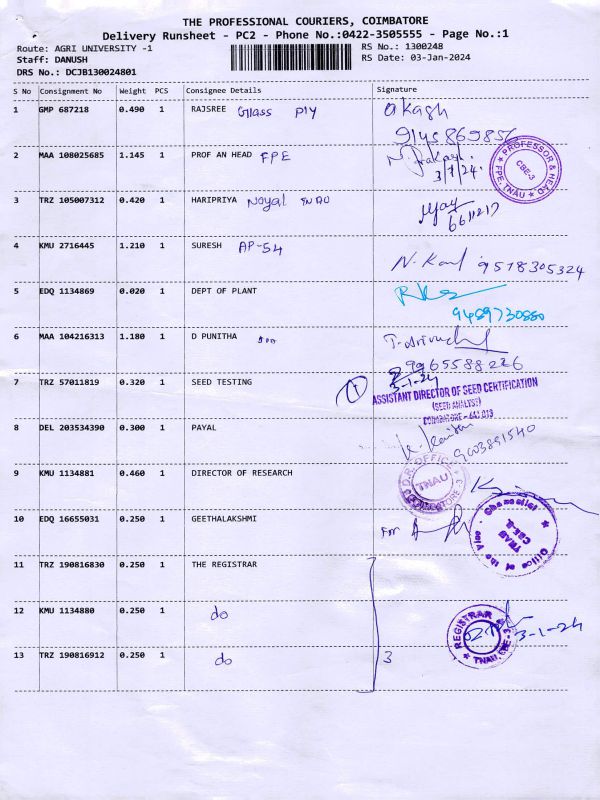 THE PROFESSIONAL COURIERS, COIMBATORE
Delivery Runsheet - PC2 - Phone No.:0422-3505555 - Page No.:1
Route: AGRI UNIVERSITY -1
RS No.: 1300248
Staff: DANUSH
RS Date: 03-Jan-2024
DRS No.: DCJB130024801
S No Consignment No Weight PCS Consignee Details Signature
1 GMP 687218 0.490 1 RAJSREE Glass Ply Akash
9145869856
2 MAA 108025685 1.145 1 PROF AN HEAD FPE
3/1/24.
PROFESSOR & HEAD FPE, TNAU CBE-3
3 TRZ 105007312 0.420 1 HARIPRIYA Noyal
6611217
4 KMU 2716445 1.210 1 SURESH AP-54
9578305324
5 EDQ 1134869 0.020 1 DEPT OF PLANT
9489730880
6 MAA 104216313 1.180 1 D PUNITHA
9965588226
3-1-24
7 TRZ 57011819 0.320 1 SEED TESTING
ASSISTANT DIRECTOR OF SEED CERTIFICATION
(SEED ANALYST)
COIMBATORE - 641 013
8 DEL 203534390 0.300 1 PAYAL
9003891540
9 KMU 1134881 0.460 1 DIRECTOR OF RESEARCH
TNAU
10 EDQ 16655031 0.250 1 GEETHALAKSHMI For
Office of the Vice - Chancellor TNAU CBE-3
11 TRZ 190816830 0.250 1 THE REGISTRAR
12 KMU 1134880 0.250 1 do
REGISTRAR TNAU, CBE-3
3-1-24
13 TRZ 190816912 0.250 1 do 3